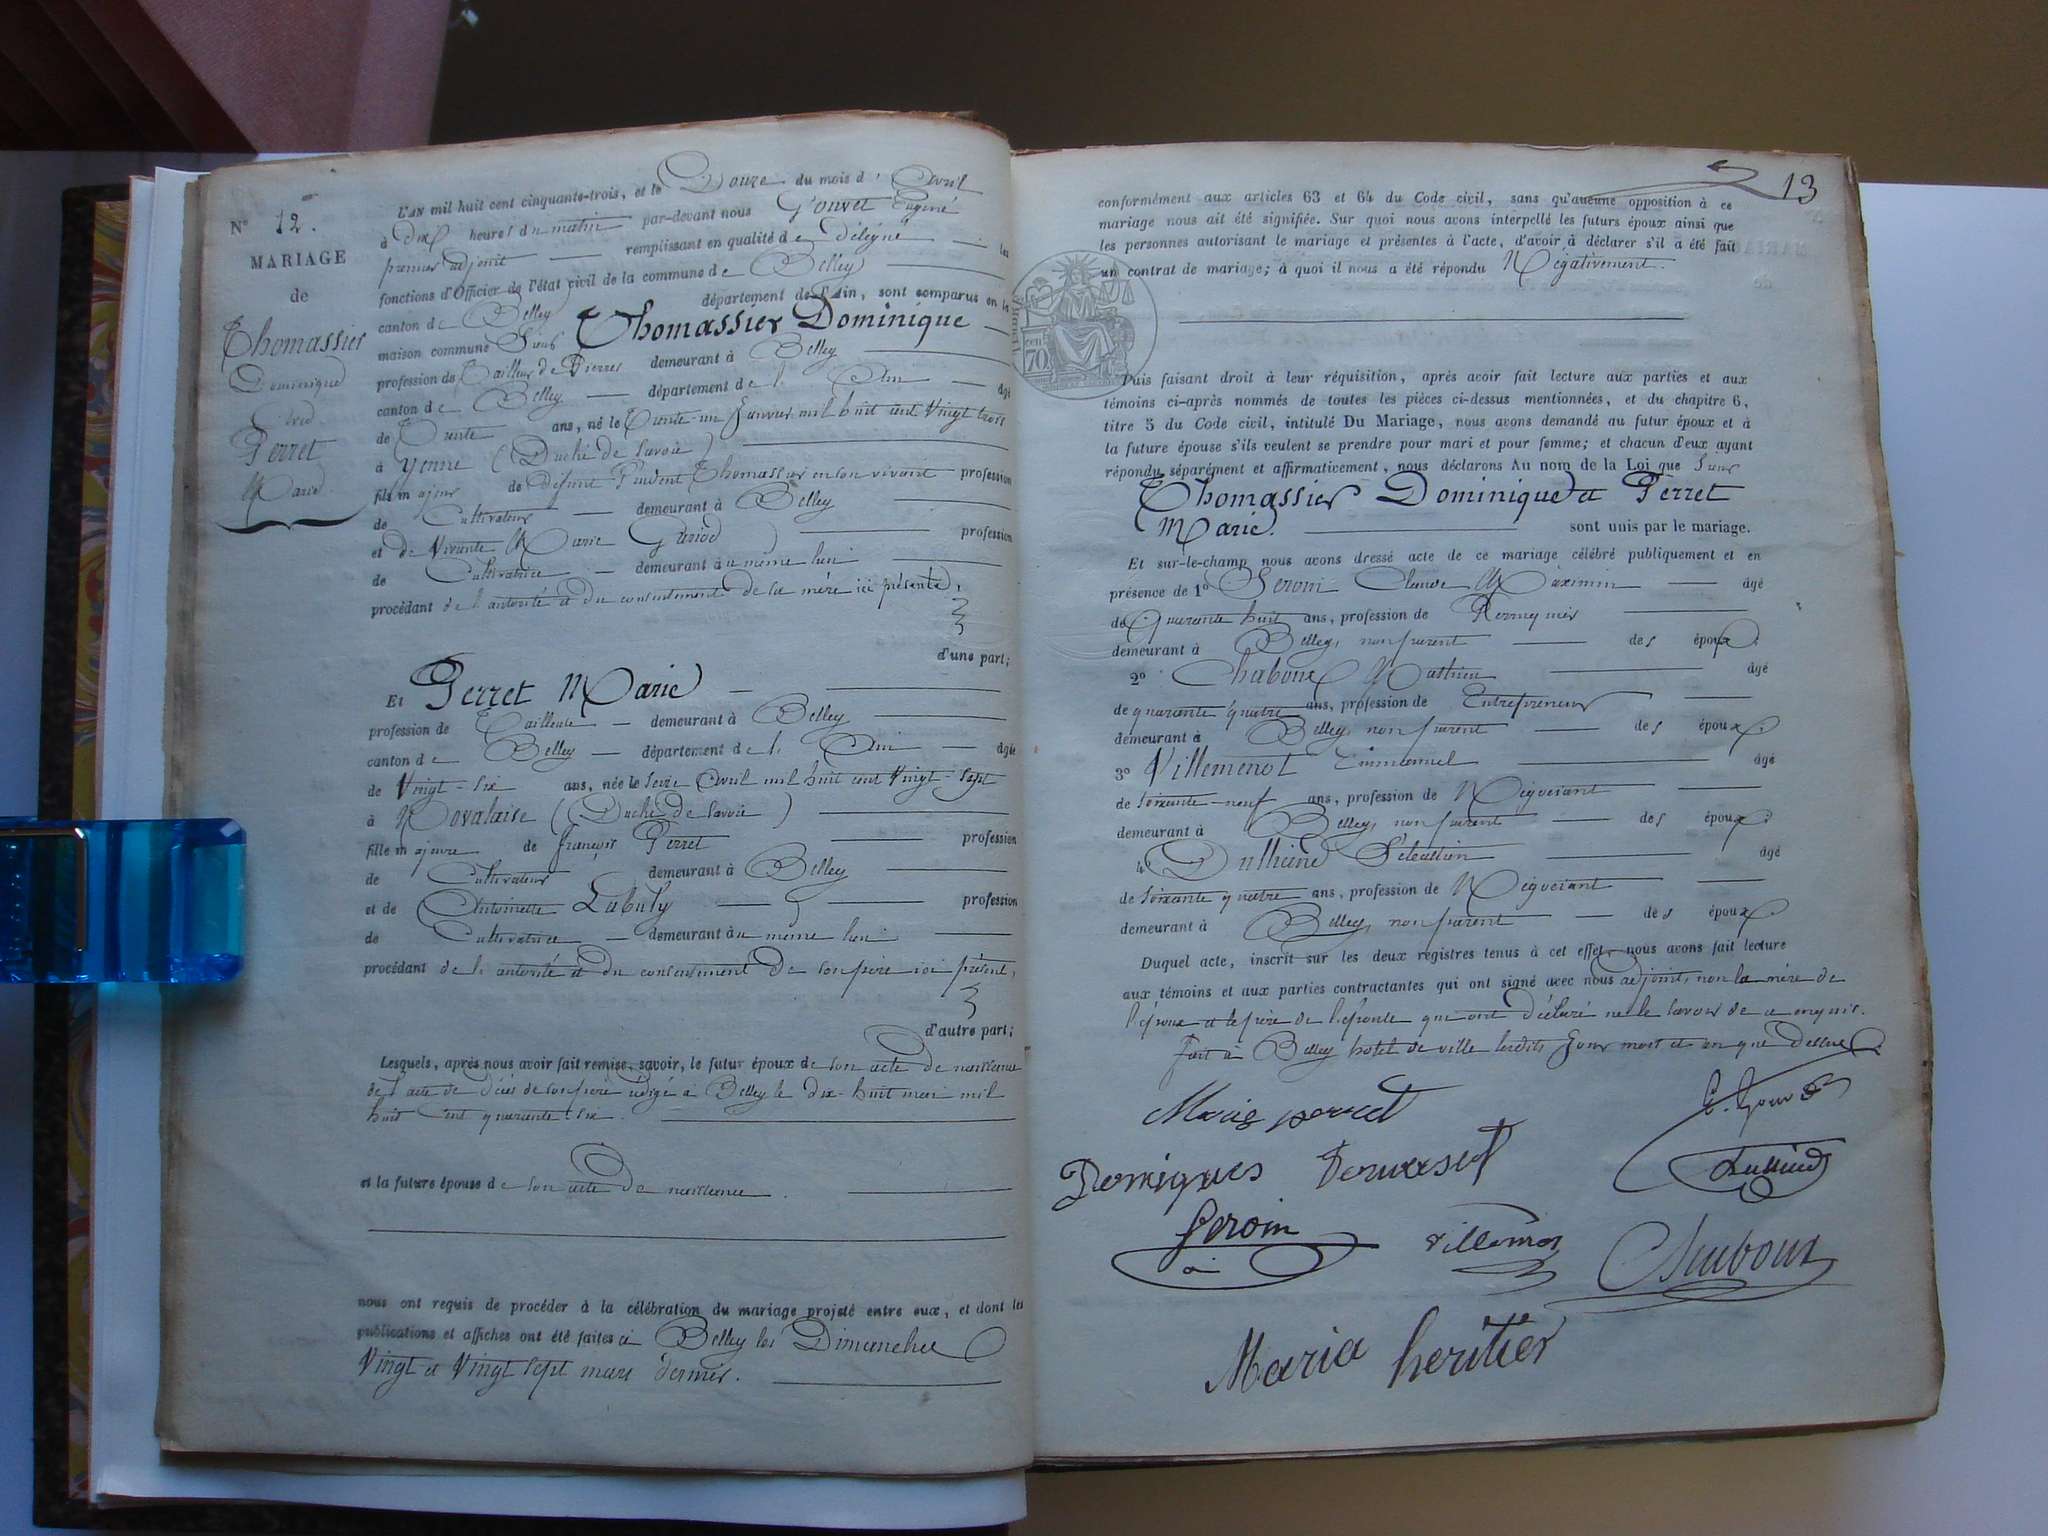 N° 12.
MARIAGE
de
Thomassier
Dominique
avec
Perret
Marie.
L'AN mil huit cent cinquante-trois, et le Douze du mois d'Avril
à dix heures du matin par-devant nous Gouvet Eugène
premier adjoint remplissant en qualité de délégué les
fonctions d'Officier de l'état civil de la commune de Belley
canton de Belley département de l'Ain, sont comparus en la
maison commune Sieur Thomassier Dominique
profession de Tailleur de Pierres demeurant à Belley
canton de Belley département de l'Ain âgé
de Trente ans, né le Trente-un Janvier mil huit cent Vingt trois
à Yenne (Duché de Savoie)
fils majeur de défunt Prudent Thomassier en son vivant profession
de Cultivateur demeurant à Belley
et de Vivante Marie Guriod profession
de Cultivatrice demeurant au même lieu
procédant de l'autorité et du consentement de sa mère ici présente,
d'une part;
Et Perret Marie
profession de Tailleuse demeurant à Belley
canton de Belley département de l'Ain âgée
de Vingt-six ans, née le Seize Avril mil huit cent Vingt-Sept
à Novalaise (Duché de Savoie)
fille majeure de François Perret profession
de Cultivateur demeurant à Belley
et de Antoinette Labuly profession
de Cultivatrice demeurant au même lieu
procédant de l'autorité et du consentement de son père ici présent,
d'autre part;
Lesquels, après nous avoir fait remise, savoir, le futur époux de son acte de naissance
de l'acte de décès de son père rédigé à Belley le dix-huit mai mil
huit cent quarante-six.
et la future épouse de son acte de naissance.
nous ont requis de procéder à la célébration du mariage projeté entre eux, et dont les
publications et affiches ont été faites à Belley les Dimanches
Vingt et Vingt sept mars dernier.
13
conformément aux articles 63 et 64 du Code civil, sans qu'aucune opposition à ce
mariage nous ait été signifiée. Sur quoi nous avons interpellé les futurs époux ainsi que
les personnes autorisant le mariage et présentes à l'acte, d'avoir à déclarer s'il a été fait
un contrat de mariage; à quoi il nous a été répondu Négativement.
70
Puis faisant droit à leur réquisition, après avoir fait lecture aux parties et aux
témoins ci-après nommés de toutes les pièces ci-dessus mentionnées, et du chapitre 6,
titre 5 du Code civil, intitulé Du Mariage, nous avons demandé au futur époux et à
la future épouse s'ils veulent se prendre pour mari et pour femme; et chacun d'eux ayant
répondu séparément et affirmativement, nous déclarons Au nom de la Loi que Sieur
Thomassier Dominique et Perret
Marie. sont unis par le mariage.
Et sur-le-champ nous avons dressé acte de ce mariage célébré publiquement et en
présence de 1° Seroin Claude Maximin âgé
de Quarante huit ans, profession de Perruquier
demeurant à Belley, non parent des époux.
2° Chaboux Mathieu âgé
de quarante quatre ans, profession de Entrepreneur
demeurant à Belley, non parent des époux
3° Villemenot Emmanuel âgé
de Soixante-neuf ans, profession de Négociant
demeurant à Belley, non parent des époux.
4° Dullieud Sébastien âgé
de Soixante quatre ans, profession de Négociant
demeurant à Belley, non parent des époux.
Duquel acte, inscrit sur les deux registres tenus à cet effet, nous avons fait lecture
aux témoins et aux parties contractantes qui ont signé avec nous adjoint, non la mère de
l'époux et le père de l'épouse qui ont déclaré ne le savoir de ce enquis.
Fait à Belley hôtel de ville lesdits Jour mois et an que dessus
Marie perret
E. Gouvet
Domiques
Dullieud
Seroin
Villemenot
Chaboux
Maria heritier